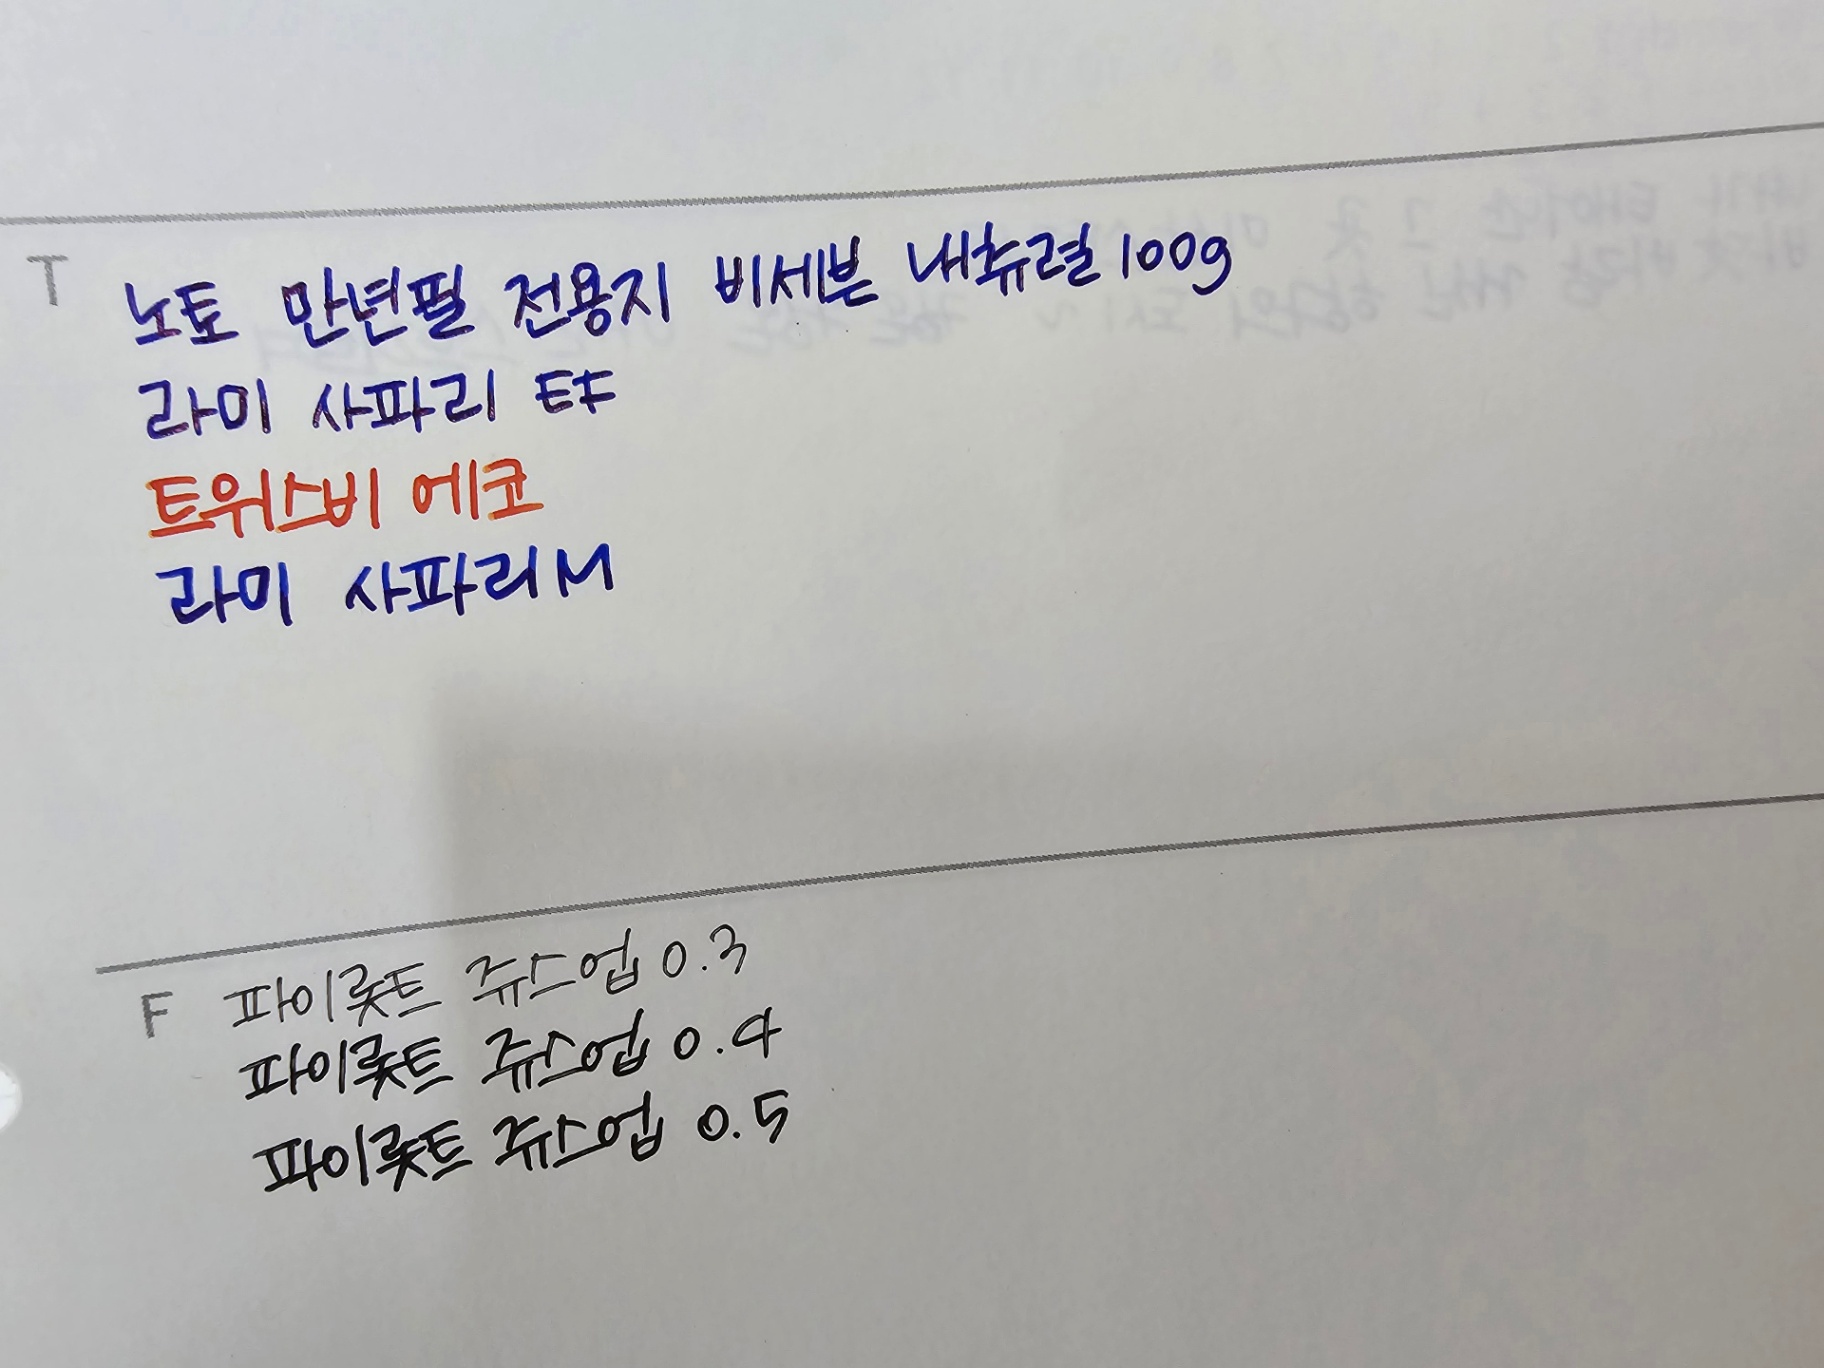 T
노토 만년필 전용지 비세븐 내츄럴 100g
라미 사파리 EF
트위스비 에코
라미 사파리 M
F 파이롯트 쥬스업 0.3
파이롯트 쥬스업 0.4
파이롯트 쥬스업 0.5